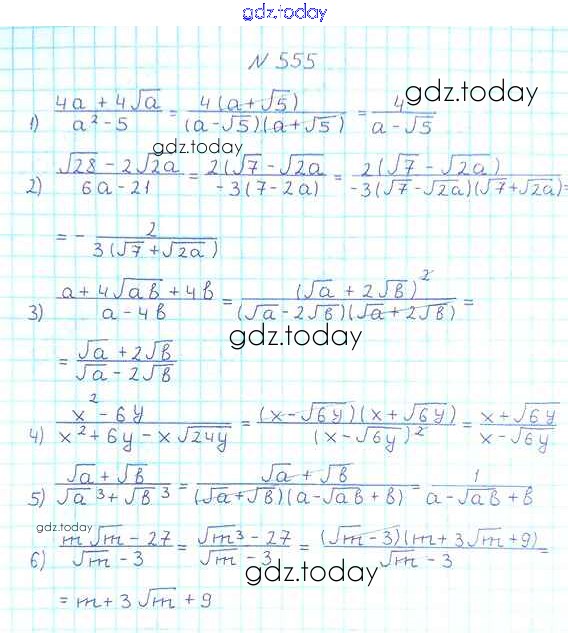 gdz.today
N 555
1) (4a + 4√a)/(a² - 5) = (4(a + √5))/((a - √5)(a + √5)) = 4/(a - √5)
gdz.today
gdz.today
2) (√28 - 2√2a)/(6a - 21) = (2(√7 - √2a))/(-3(7 - 2a)) = (2(√7 - √2a))/(-3(√7 - √2a)(√7 + √2a)) =
= - 2/(3(√7 + √2a))
3) (a + 4√ab + 4b)/(a - 4b) = (√a + 2√b)²/((√a - 2√b)(√a + 2√b)) =
gdz.today
= (√a + 2√b)/(√a - 2√b)
4) (x² - 6y)/(x² + 6y - x√24y) = ((x - √6y)(x + √6y))/(x - √6y)² = (x + √6y)/(x - √6y)
5) (√a + √b)/(√a³ + √b³) = (√a + √b)/((√a + √b)(a - √ab + b)) = 1/(a - √ab + b)
gdz.today
6) (m√m - 27)/(√m - 3) = (√m³ - 27)/(√m - 3) = ((√m - 3)(m + 3√m + 9))/(√m - 3) =
gdz.today
= m + 3√m + 9